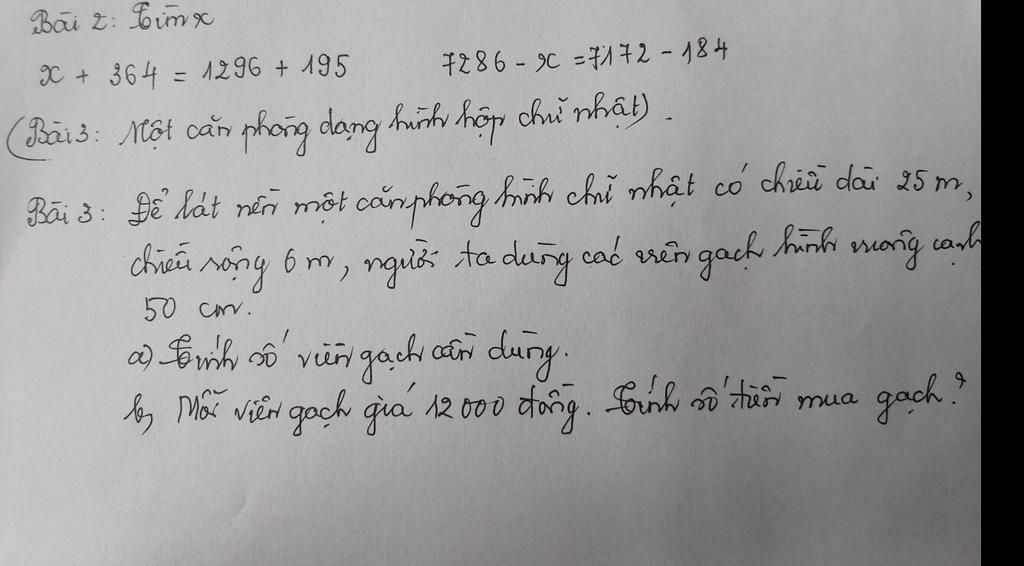 Bài 2: Tìm x
x + 364 = 1296 + 195 7286 - x = 7172 - 184
(Bài 3: Một căn phòng dạng hình hộp chữ nhật).
Bài 3: Để lát nền một căn phòng hình chữ nhật có chiều dài 25 m,
chiều rộng 6 m, người ta dùng các viên gạch hình vuông cạnh
50 cm.
a) Tính số viên gạch cần dùng.
b) Mỗi viên gạch giá 12 000 đồng. Tính số tiền mua gạch?